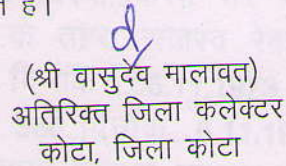 है।
(श्री वासुदेव मालावत)
अतिरिक्त जिला कलेक्टर
कोटा, जिला कोटा